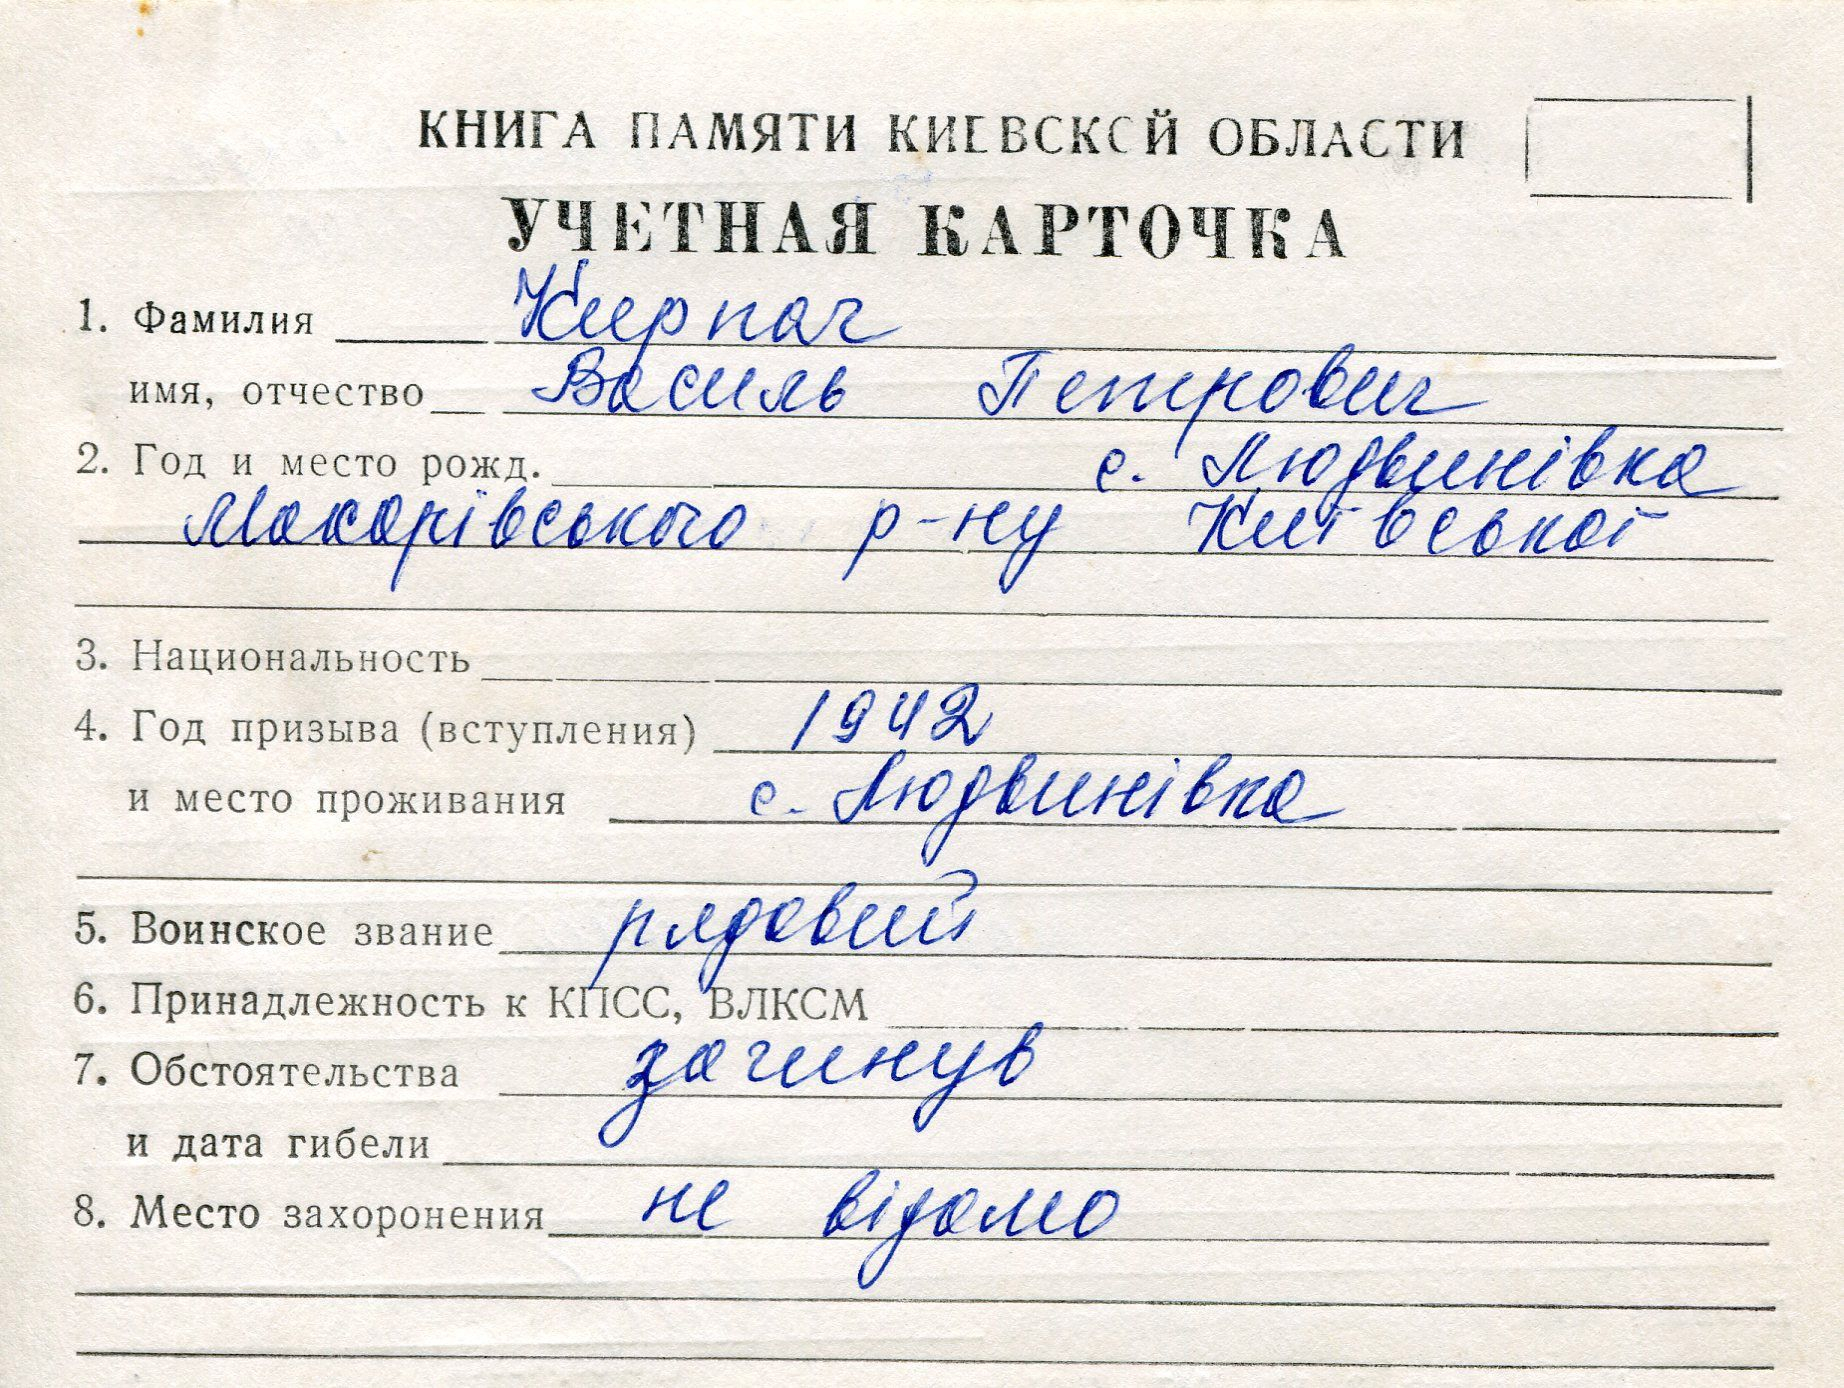 КНИГА ПАМЯТИ КИЕВСКОЙ ОБЛАСТИ
УЧЕТНАЯ КАРТОЧКА
1. Фамилия Кирпач
имя, отчество Василь Петрович
2. Год и место рожд. с. Людвинівка
Макарівського р-ну Київської
3. Национальность
4. Год призыва (вступления) 1942
и место проживания с. Людвинівка
5. Воинское звание рядовий
6. Принадлежность к КПСС, ВЛКСМ
7. Обстоятельства загинув
и дата гибели
8. Место захоронения не відомо